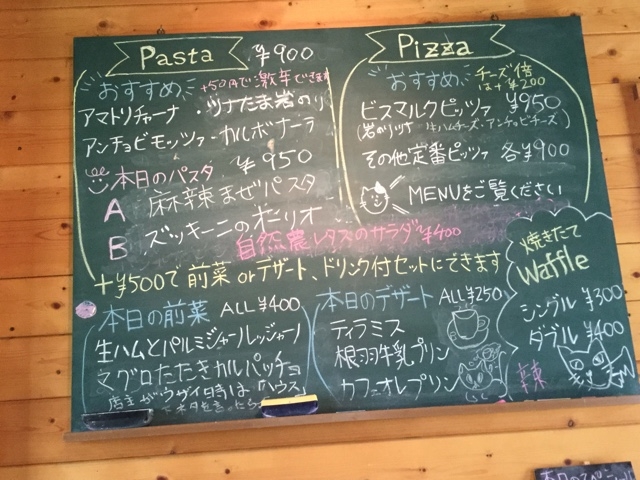 Pasta ¥900
おすすめ +50円で激辛できます
アマトリチャーナ・ツナたま岩のり
アンチョビモッツァ・カルボナーラ
本日のパスタ ¥950
A 麻辣まぜパスタ
B ズッキーニのオーリオ
Pizza
おすすめ チーズ倍は+¥200
ビスマルクピッツァ ¥950
その他定番ピッツァ 各¥900
MENUをご覧ください
自然農レタスのサラダ ¥400
+¥500で前菜orデザート、ドリンク付セットにできます
本日の前菜 ALL¥400
生ハムとパルミジャーノレッジャーノ
マグロたたきカルパッチョ
店主がウザイ時は「ハウス」
本日のデザート ALL¥250
ティラミス
根羽牛乳プリン
カフェオレプリン
焼きたて
Waffle
シングル ¥300
ダブル ¥400
辣